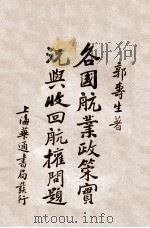 郭壽生著
各國航業政策實
況與收回航權問題
上海華通書局發行